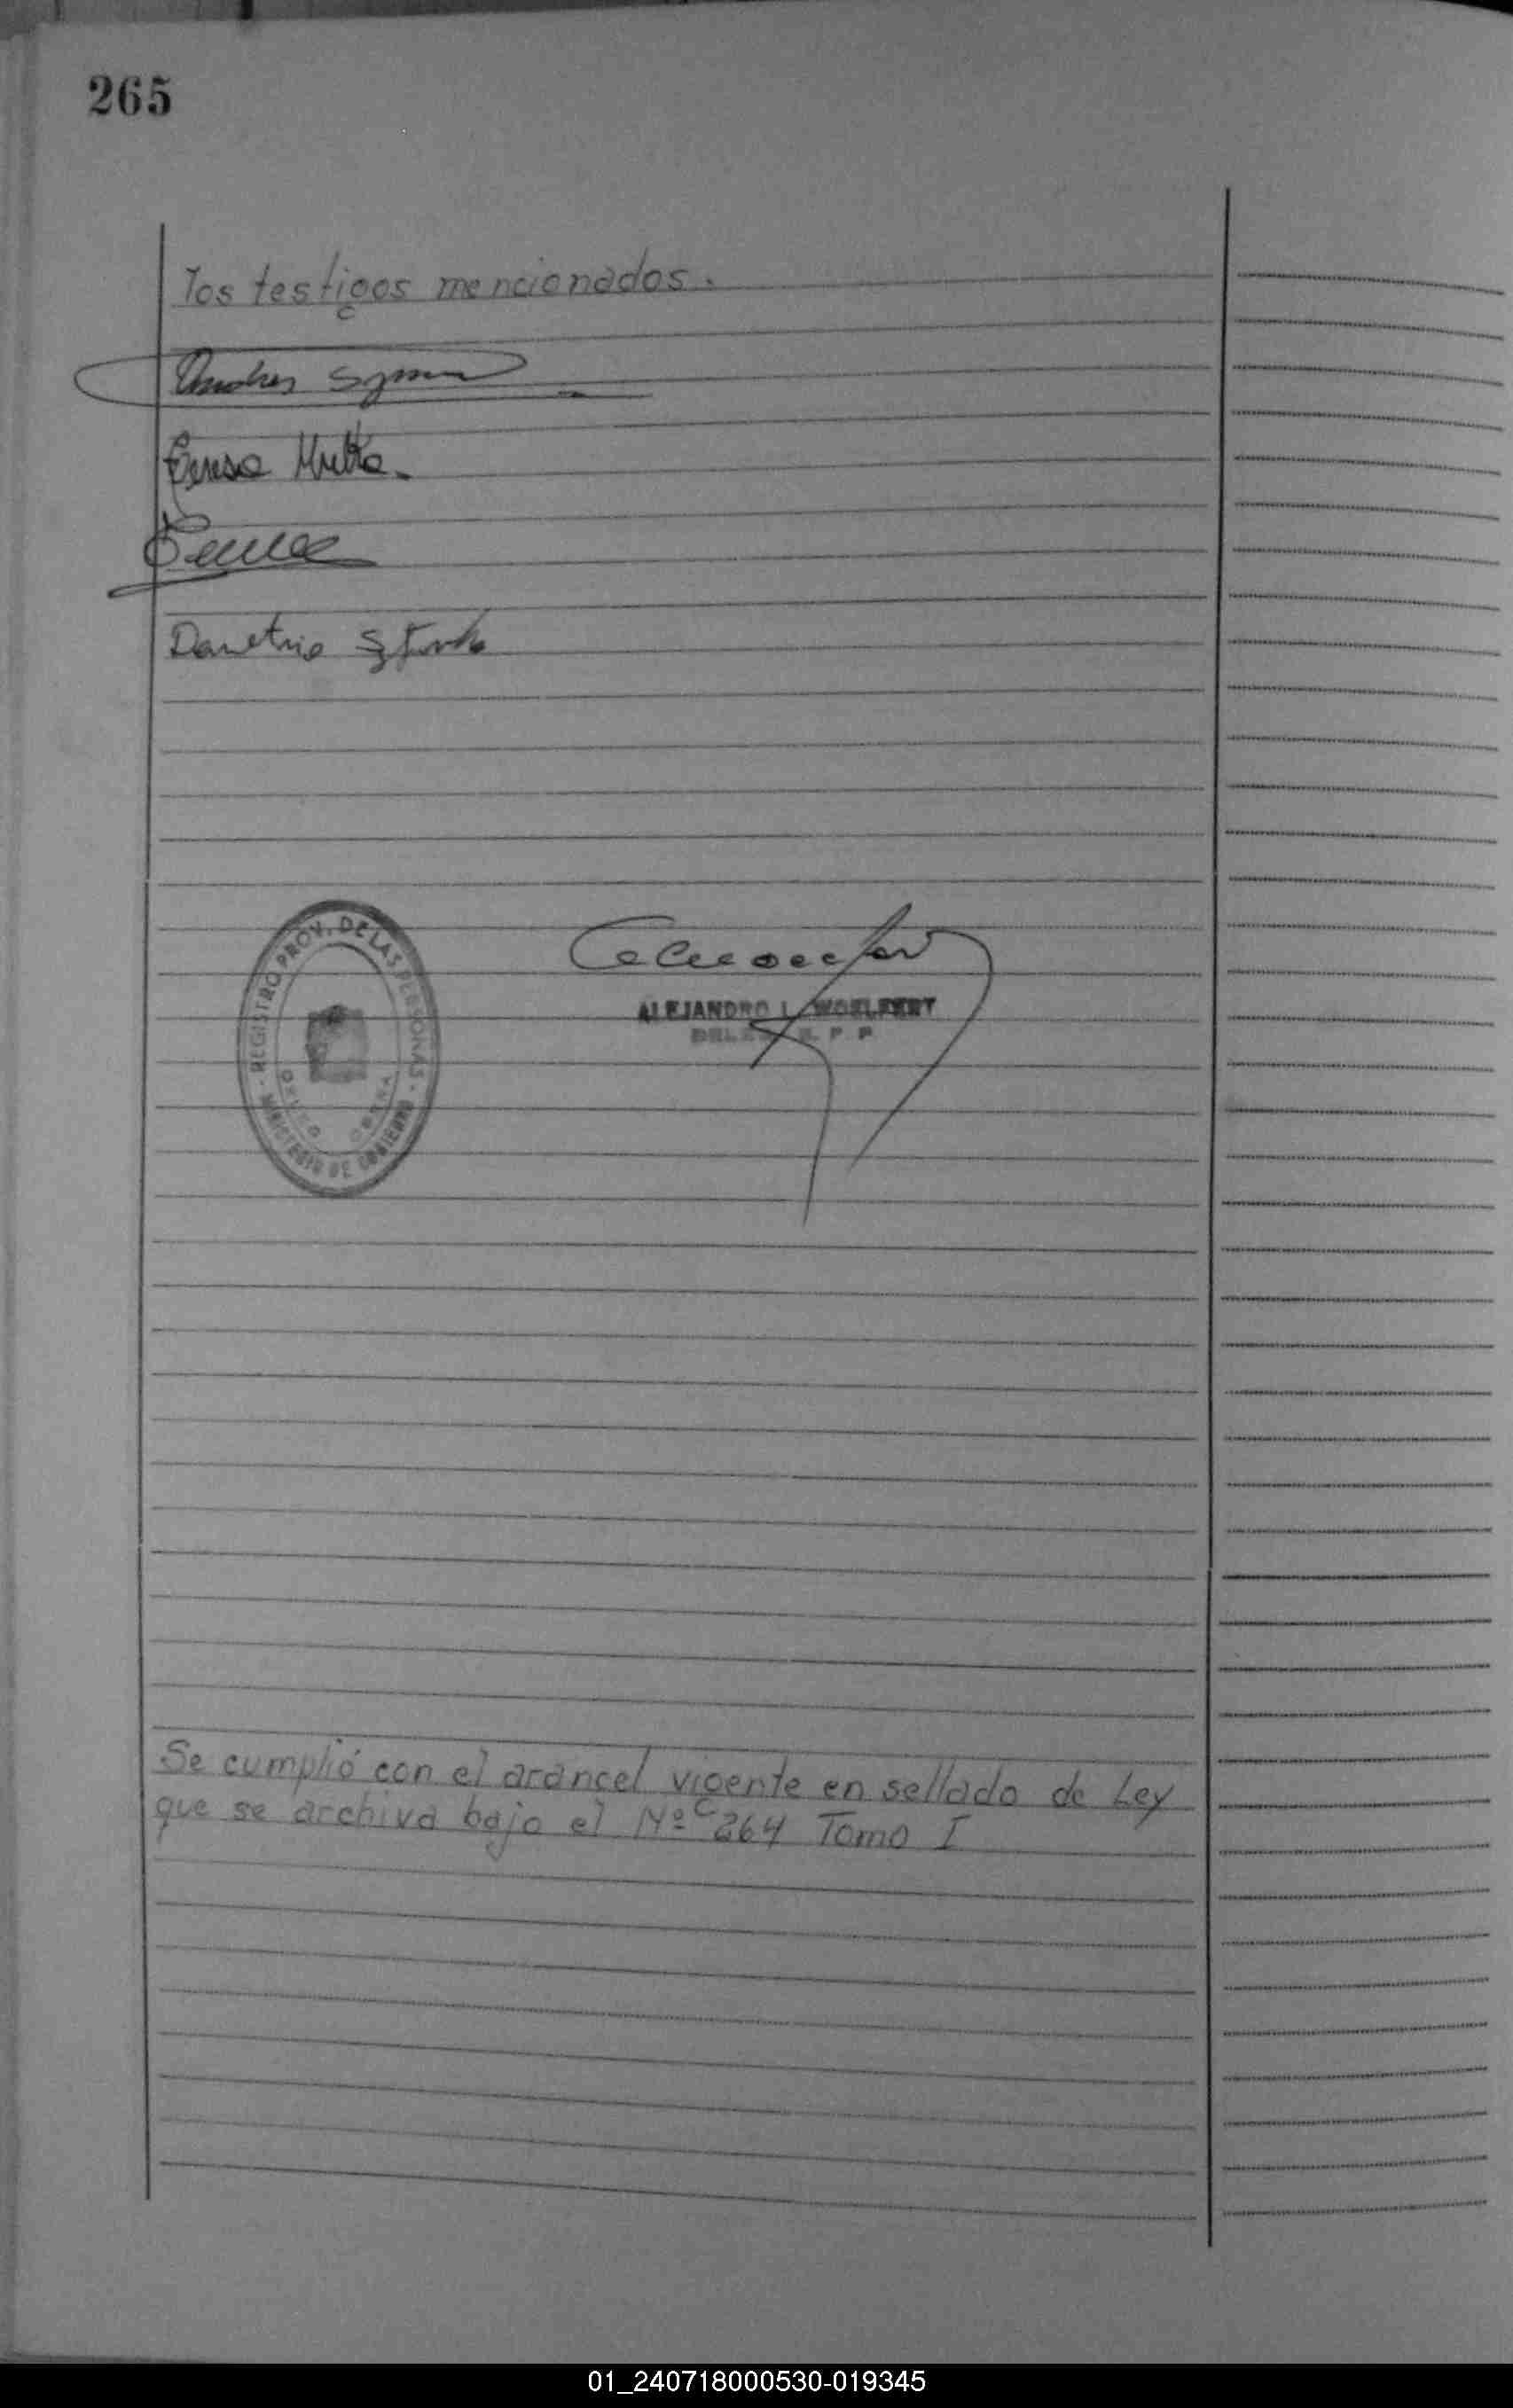 265
los testigos mencionados.
Teresa
Demetrio
REGISTRO PROV. DE LAS PERSONAS - MINISTERIO DE GOBIERNO -
ALEJANDRO L. WOELFERT
P. P.
Se cumplió con el arancel vigente en sellado de Ley
que se archiva bajo el Nº 264 Tomo I
01_240718000530-019345